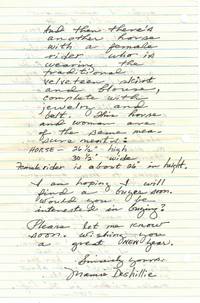 And then there's
another horse
with a female
rider who is
wearing the
traditional
velveteen skirt
and blouse,
complete with
jewelry and
belt. This horse
and woman are
of the same mea-
surements:
HORSE - 26½" high
30½" wide
Female rider is about 26" in height.
I am hoping I will
find a buyer soon.
Would you be
interested in buying?
Please let me know
soon. Wishing you
a great (NEW) year.
Sincerely yours,
Mamie Deschillie